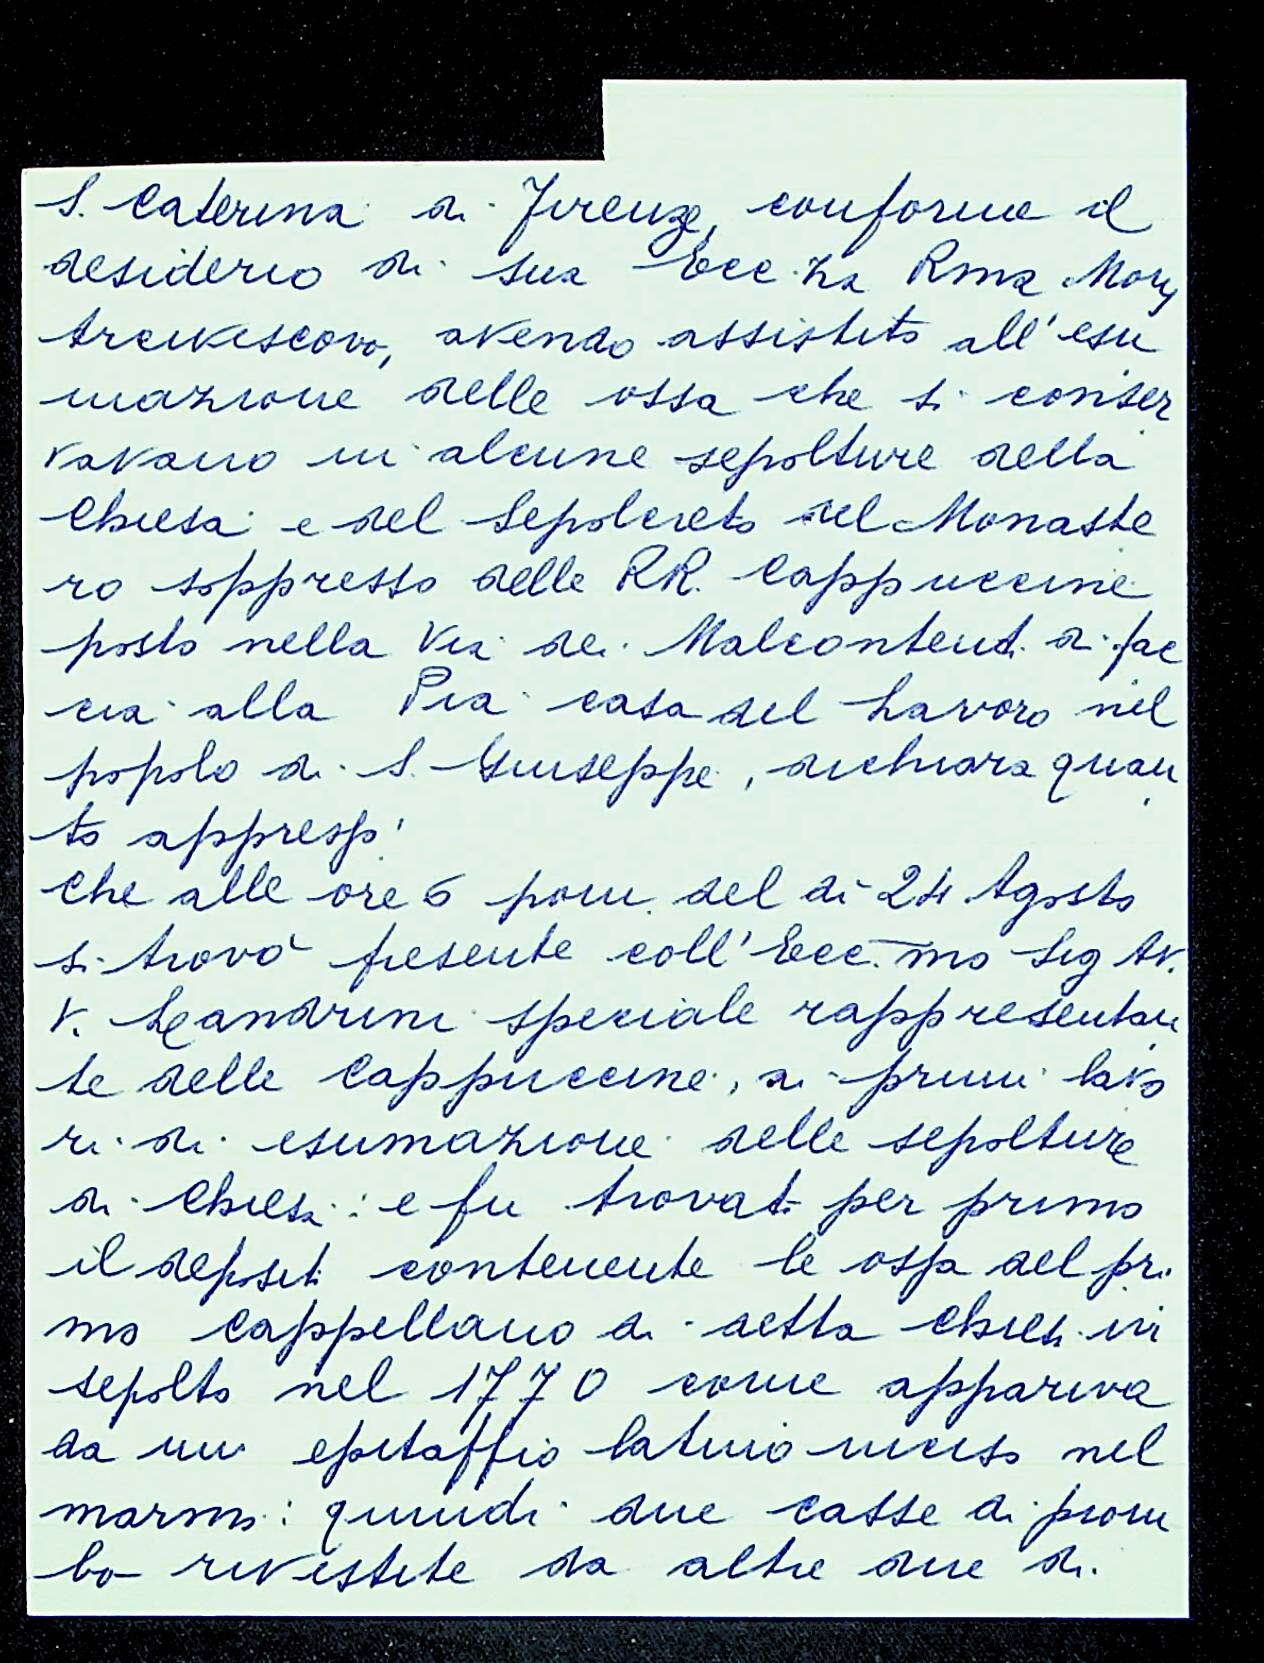 S. Caterina di Firenze, conforme il
desiderio di sua Ecc.za Rma Mons
Arcivescovo, avendo assistito all'esu
mazione delle ossa che si conser
vavano in alcune sepolture della
Chiesa e del Sepolcreto del Monaste
ro soppresso delle RR. Cappuccine
posto nella Via dei Malcontenti di fac
cia alla Pia casa del Lavoro nel
popolo di S. Giuseppe, dichiara quan
to appresso:
Che alle ore 6 pom. del dì 24 Agosto
si trovò presente coll'Ecc.mo Sig Av.
V. Leandrini speciale rappresentan
te delle Cappuccine, ai primi lavo
ri di esumazione delle sepolture
di Chiesa: e fu trovati per primo
il depositi contenente le ossa del pri
mo Cappellano di detta Chiesa ivi
sepolto nel 1770 come appariva
da un epitaffio latino inciso nel
marmo: quindi due casse di piom
bo rivestite da altre due di